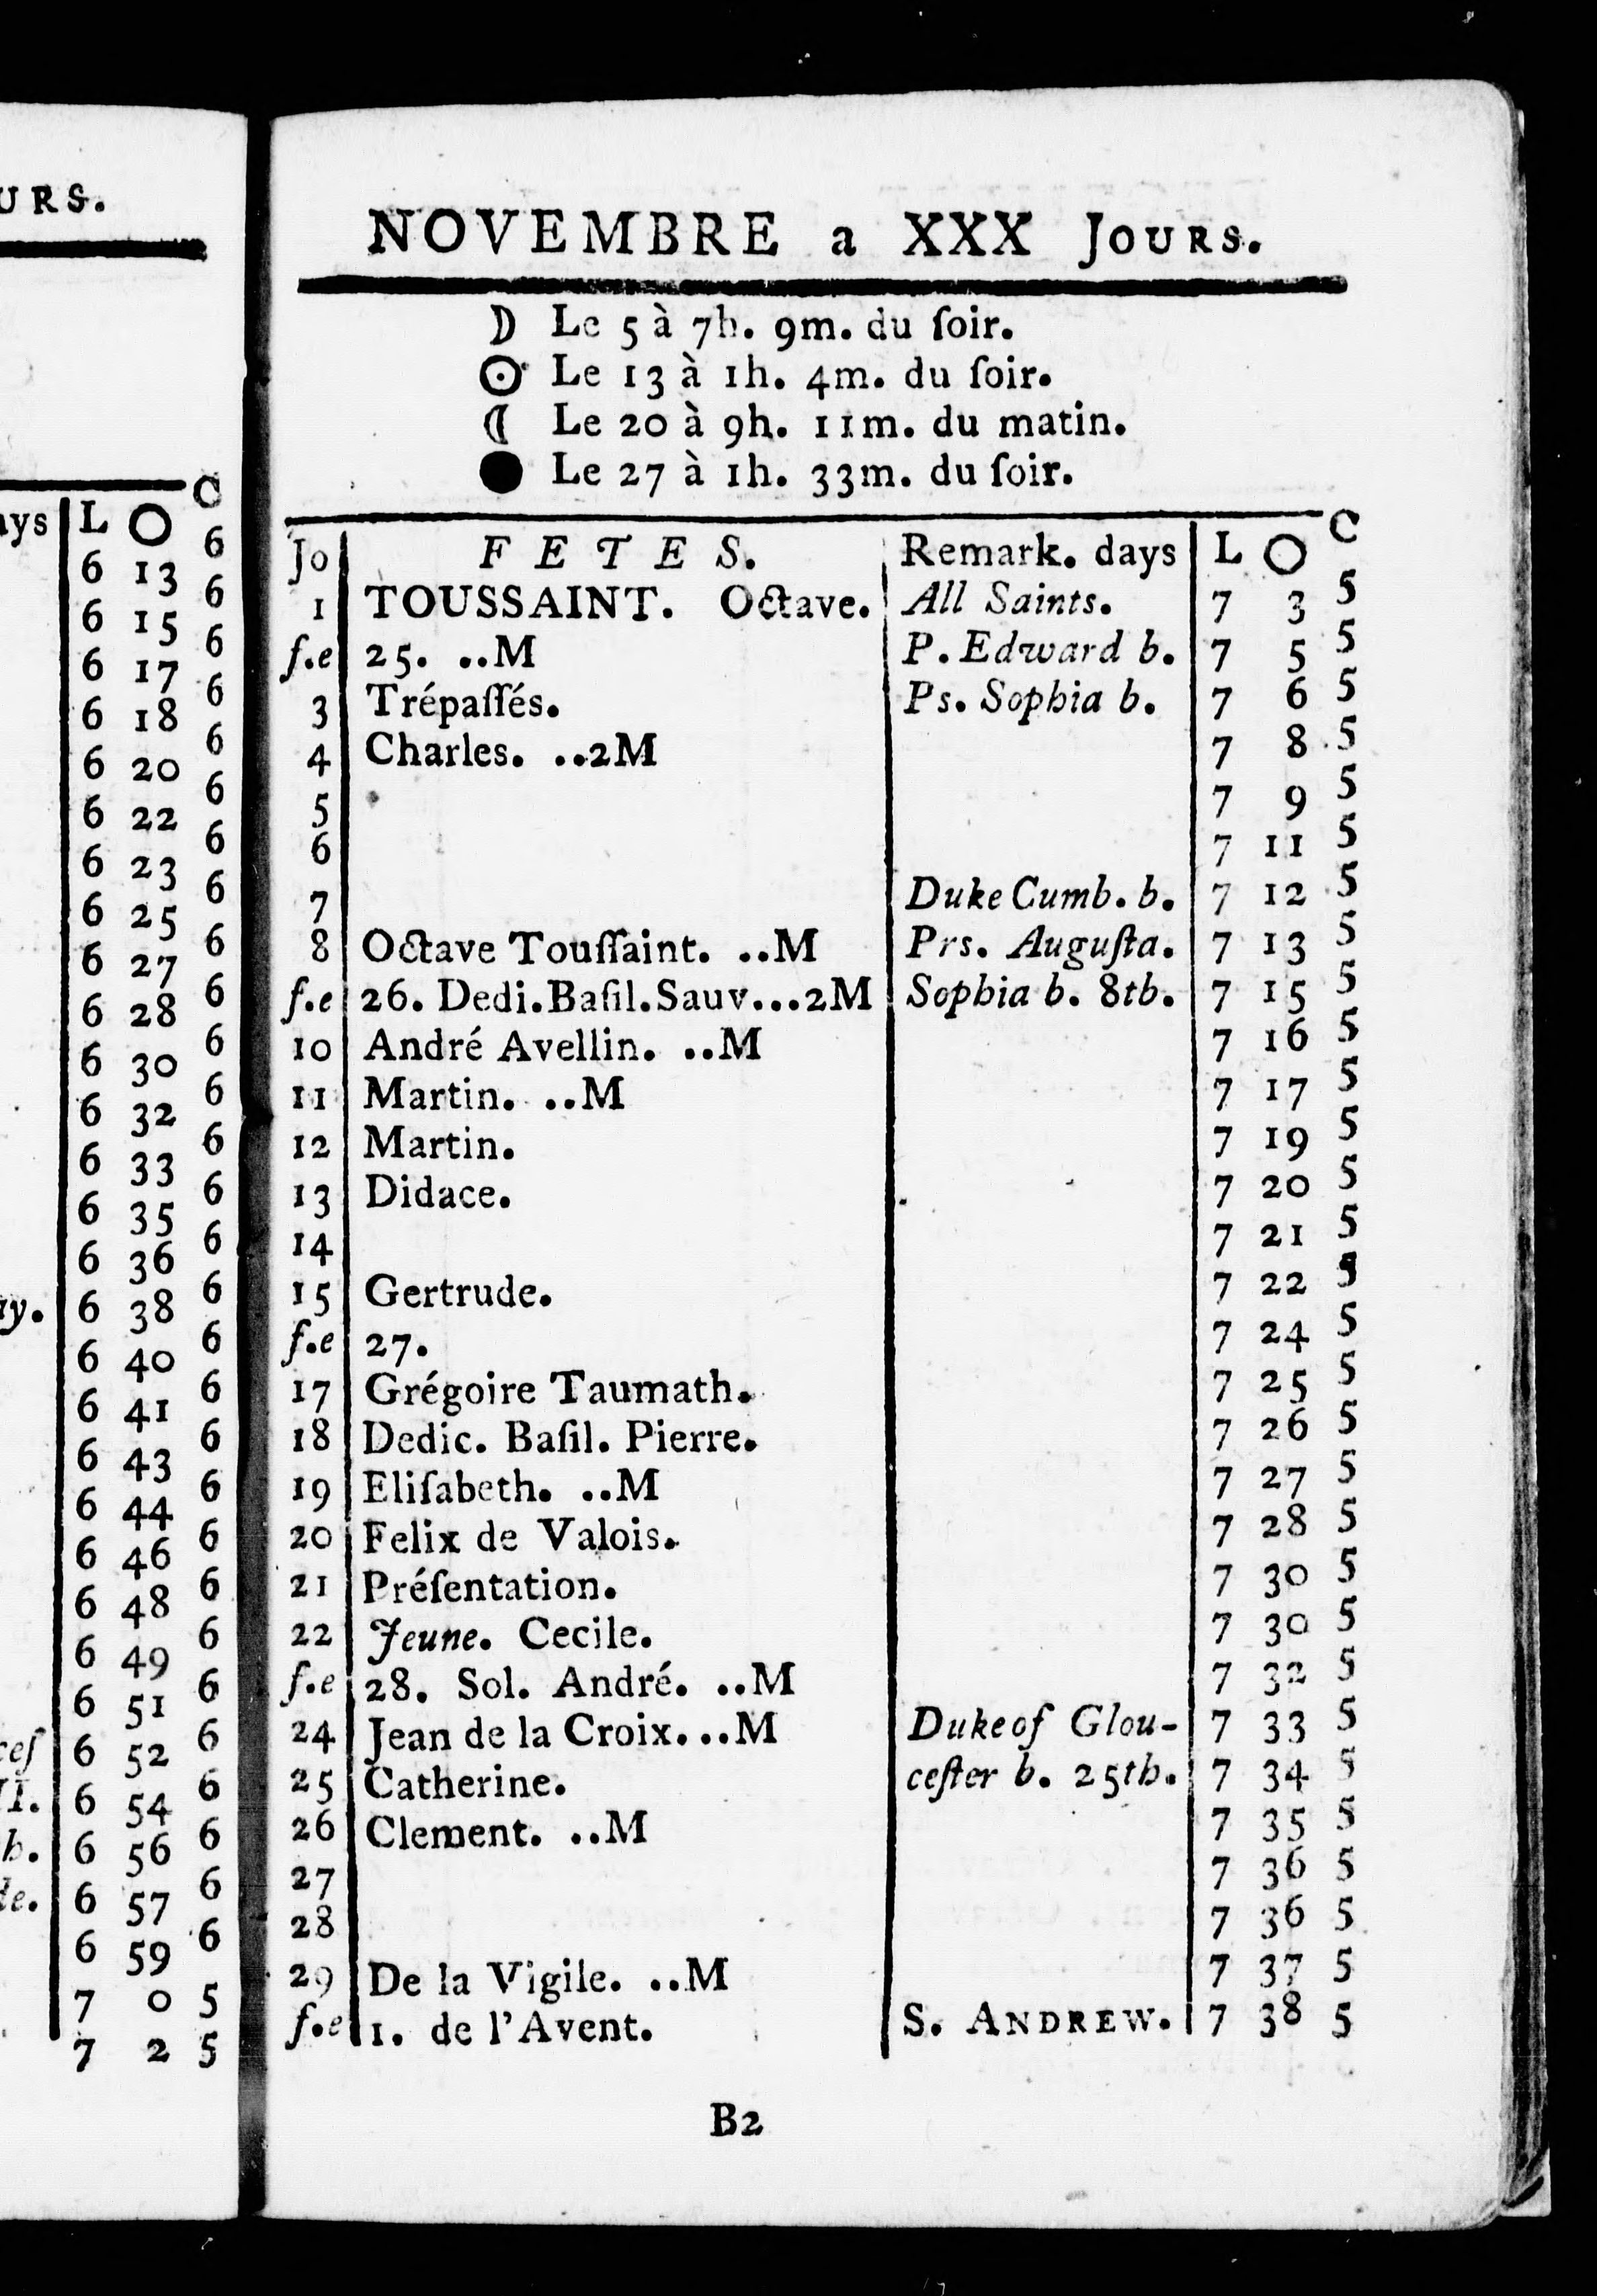 URS.
ays L O C
6 13 6
6 15 6
6 17 6
6 18 6
6 20 6
6 22 6
6 23 6
6 25 6
6 27 6
6 28 6
6 30 6
6 32 6
6 33 6
6 35 6
6 36 6
ay. 6 38 6
6 40 6
6 41 6
6 43 6
6 44 6
6 46 6
6 48 6
6 49 6
6 51 6
ceſ 6 52 6
II. 6 54 6
b. 6 56 6
de. 6 57 6
6 59 6
7 0 5
7 2 5
NOVEMBRE a XXX JOURS.
☽ Le 5 à 7h. 9m. du ſoir.
☉ Le 13 à 1h. 4m. du ſoir.
☾ Le 20 à 9h. 11m. du matin.
● Le 27 à 1h. 33m. du ſoir.
Jo FETES. Remark. days L O C
1 TOUSSAINT. Octave. All Saints. 7 3 5
f.e 25. ..M P. Edward b. 7 5 5
3 Trépaſſés. Ps. Sophia b. 7 6 5
4 Charles. ..2M 7 8 5
5 7 9 5
6 7 11 5
7 Duke Cumb. b. 7 12 5
8 Octave Touſſaint. ..M Prs. Auguſta. 7 13 5
f.e 26. Dedi.Baſil.Sauv...2M Sophia b. 8th. 7 15 5
10 André Avellin. ..M 7 16 5
11 Martin. ..M 7 17 5
12 Martin. 7 19 5
13 Didace. 7 20 5
14 7 21 5
15 Gertrude. 7 22 5
f.e 27. 7 24 5
17 Grégoire Taumath. 7 25 5
18 Dedic. Baſil. Pierre. 7 26 5
19 Eliſabeth. ..M 7 27 5
20 Felix de Valois. 7 28 5
21 Préſentation. 7 30 5
22 Jeune. Cecile. 7 30 5
f.e 28. Sol. André. ..M 7 32 5
24 Jean de la Croix...M Duke of Glou- 7 33 5
25 Catherine. ceſter b. 25th. 7 34 5
26 Clement. ..M 7 35 5
27 7 36 5
28 7 36 5
29 De la Vigile. ..M 7 37 5
f.e 1. de l'Avent. S. ANDREW. 7 38 5
B2